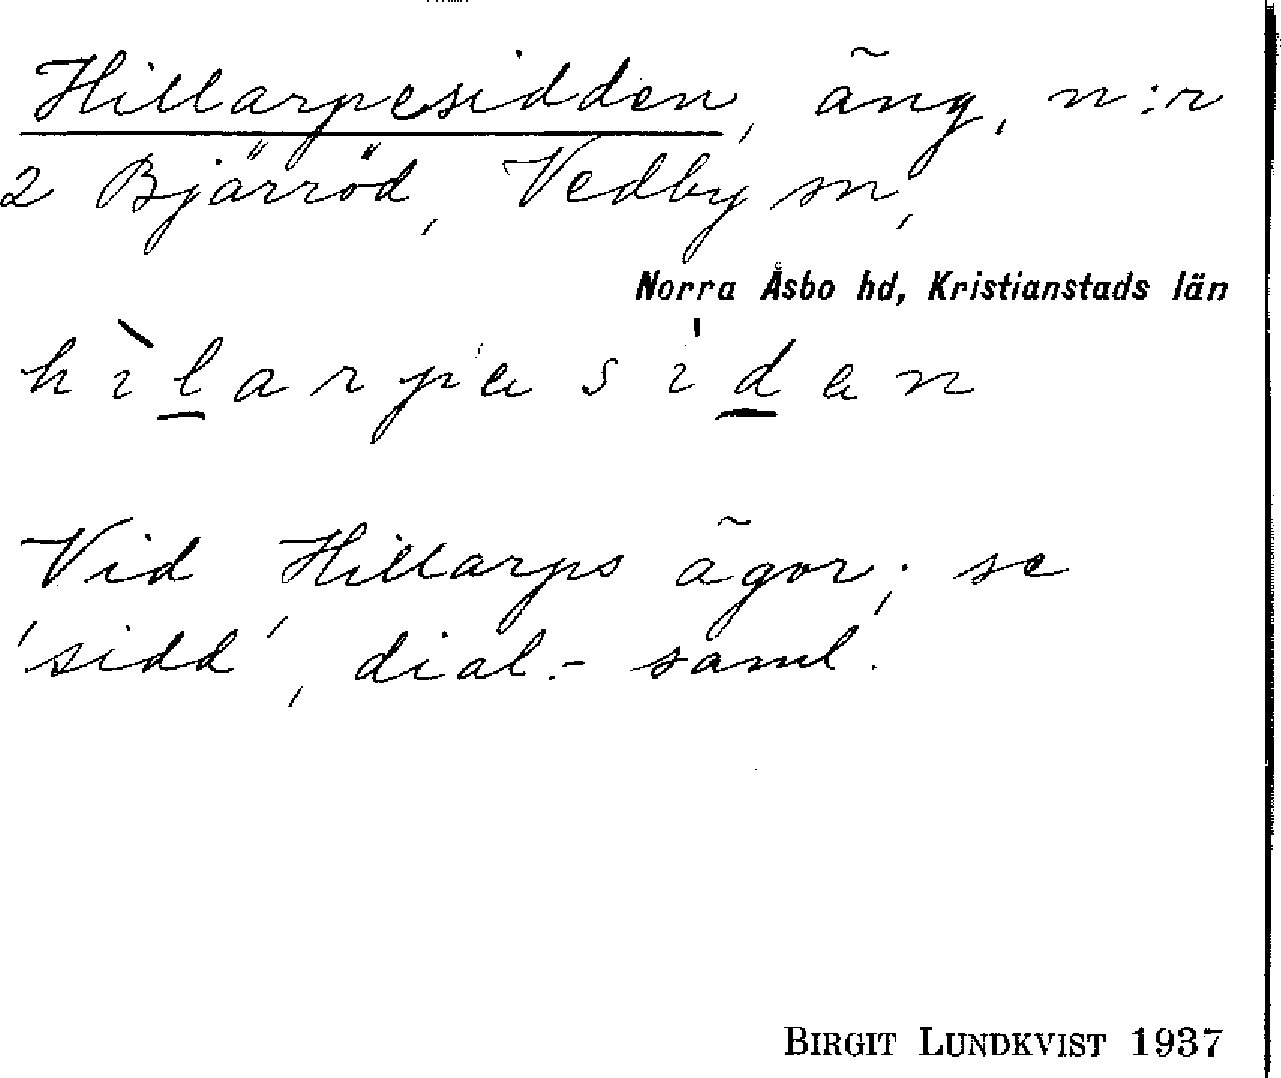 Hillarpesidden, äng, n:r
2 Bjärröd, Vedby sn,
Norra Åsbo hd, Kristianstads län
hìlarpa si̍dan
Vid Hillarps ägor; se
'sidd', dial.-saml.
BIRGIT LUNDKVIST 1937